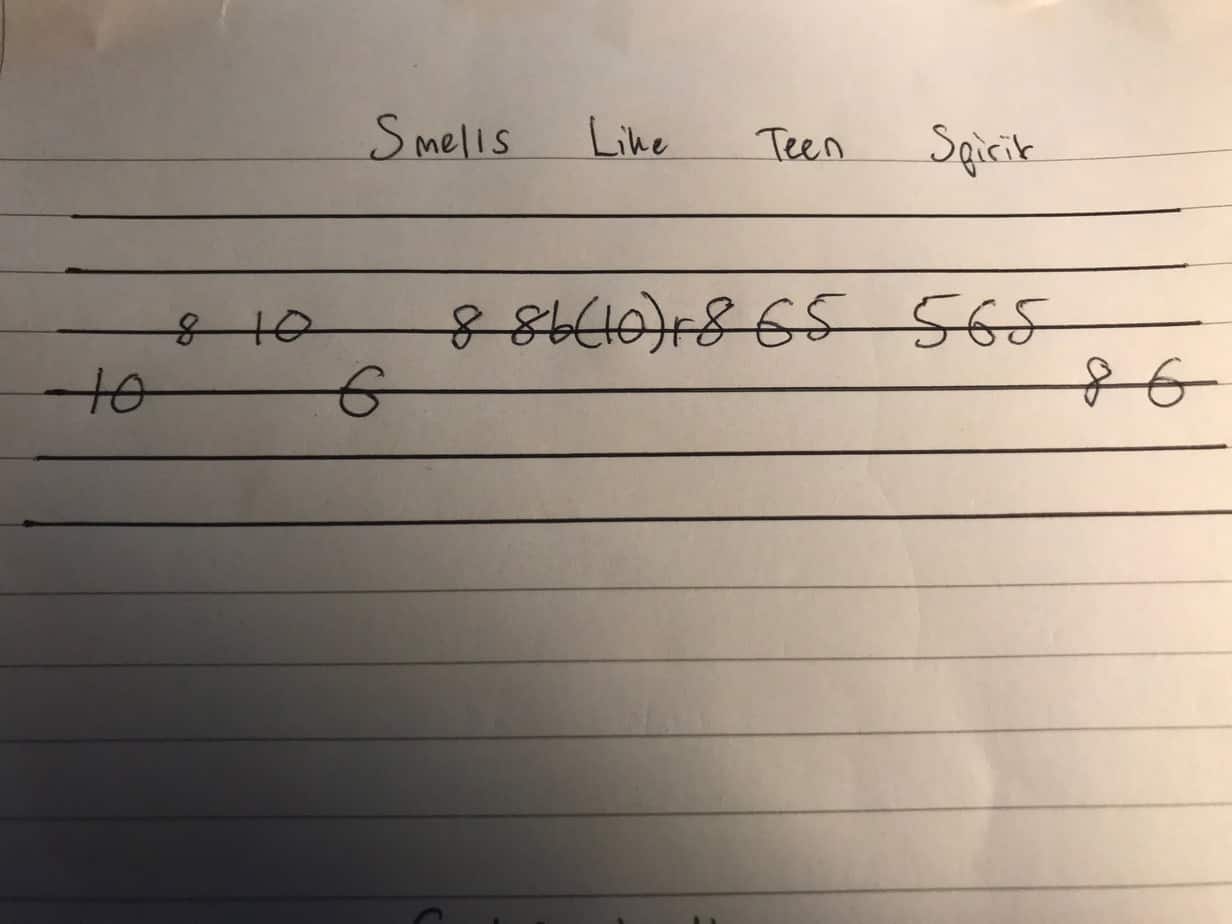 Smells Like Teen Spirit
8 10 8 8b(10)r8 65 565
10 6 8 6